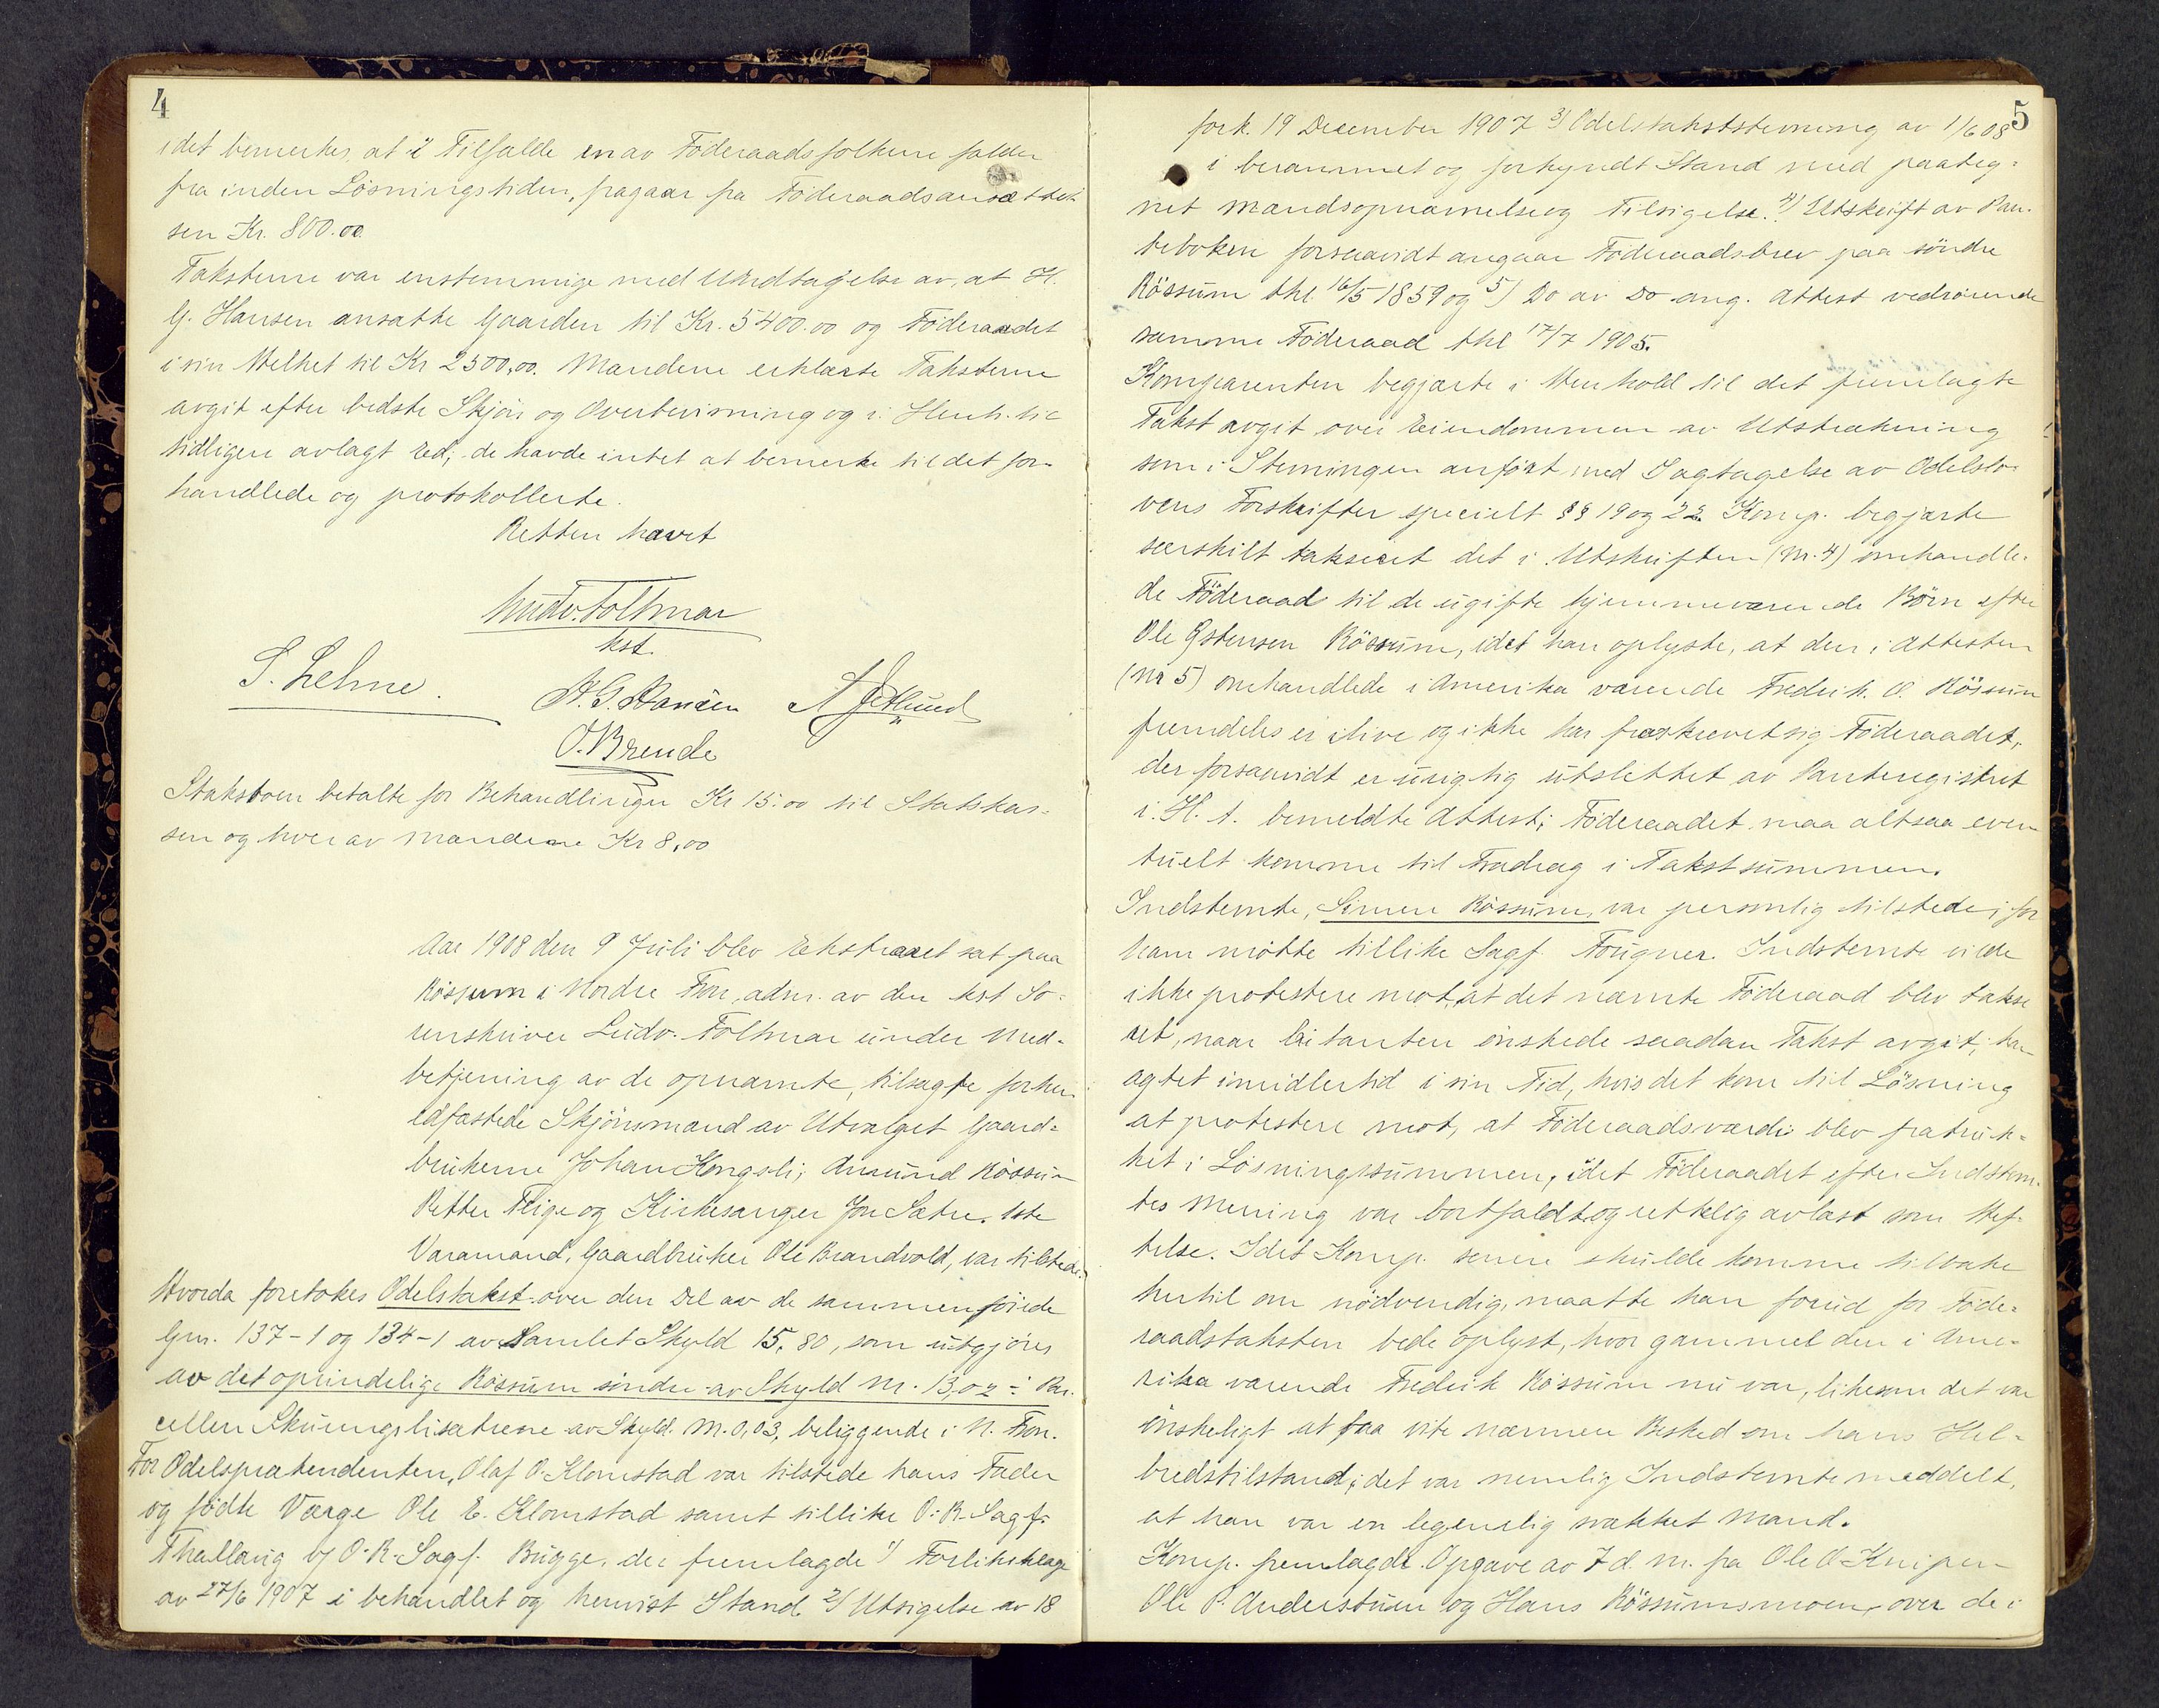 4
idet bemerkes, at i Tilfælde en av Föderaadsfolkene falder
fra inden Lösningstiden, fragaar fra Föderaadsansættel-
sen Kr. 800.00
Taksterne var enstemmige med Undtagelse av, at H.
G. Hansen ansatte Gaarden til Kr. 5400.00 og Föderaadet
i sin Helhet til Kr 2500,00. Mændene erklærte Taksterne
avgit efter bedste Skjön og Overbevisning og i Henh. til
tidligere avlagt Ed; de havde intet at bemerke til det for-
handlede og protokollerte.
Retten hævet
Ludv. Foltmar
kst.
S. Lehne.
H. G. Hansen A Jetlund
O. Brende
Takstven betalte for Behandlingen Kr 15.00 til Statskas-
sen og hver av Mændene Kr 8,00
Aar 1908 den 9 Juli blev Ekstraret sat paa
Rössum i Nordre Fron, adm. av den kst So-
renskriver Ludv. Foltmar under Med-
betjening av de opnævnte, tilsagte forhen
edfæstede Skjönsmænd av Utvalget Gaard-
brukerne Johan Kongsli, Amund Rössum
Petter Flige og Kirkesanger Jon Sætre. 1ste
Varamand, Gaardbruker Ole Brandvold, var tilstede.
Hvorda foretokes Odelstakst over den Del av de sammenföiede
Gnr. 137-1 og 134-1 av samlet Skyld 15,80, som utgjöres
av det oprindelige Rössum söndre av Skyld M. 13,02 ÷ Par-
cellen Skuringslisætrene av Skyld. M. 0,03, beliggende i N. Fron.
For Odelsprætendenten, Olaf O. Klomstad var tilstede hans Fader
og födte Værge Ole E. Klomstad samt tillike O. R. Sagf.
Thallaug v/ O. R. Sagf. Bugge, der fremlagde 1) Forliksklage
av 27/6 1907 i behandlet og henvist Stand. 2) Utsigelse av 18
5
fork. 19 December 1907 3) Odelstakststevning av 1/6 08
i berammet og forkyndt Stand med paateg-
net Mandsopnævnelse og Tilsigelse. 4) Utskrift av Pan-
teboken forsaavidt angaar Föderaadsbrev paa söndre
Rössum thl. 16/5 1859 og 5) Do av Do ang. Attest vedrörende
samme Föderaad thl 17/7 1905.
Komparenten begjærte i Henhold til det fremlagte
Takst avgit over Eiendommen av Utstrækning
som i Stevningen anfört med Iagtagelse av Odelslo-
vens Forskrifter specielt §§ 19 og 22. Komp. begjærte
særskilt taksert det i Utskriften (Nr. 4) omhandle-
de Föderaad til de ugifte hjemmeværende Börn efter
Ole Estensen Rössum, idet han oplyste, at den i Attesten
(Nr 5) omhandlede i Amerika værende Fredrik O. Rössum
fremdeles er ilive og ikke har fraskrevet sig Föderaadet,
der forsaavidt er urigtig utslettet av Panteregistret
i H. t. bemeldte Attest; Föderaadet maa altsaa even-
tuelt komme til Fradrag i Takstsummen.
Indstevnte, Simen Rössum, var personlig tilstede; for
ham mötte tillike Sagf. Fougner. Indstevnte vilde
ikke protestere mot, at det nævnte Föderaad blev takse-
ret, naar Citanten önskede saadan Takst avgit; han
agtet imidlertid i sin Tid, hvis det kom til Lösning
at protestere mot, at Föderaadsværdi blev fratruk-
ket i Lösningssummen, idet Föderaadet efter Indstevn-
tes Mening var bortfaldt og rettelig avlæst som Hef-
telse. Idet Komp. senere skulde komme tilbake
hertil om nödvendig, maatte han forud for Föde-
raadstaksten bede oplyst, hvor gammel den i Ame-
rika værende Fredrik Rössum nu var, likesom det var
önskeligt at faa vite nærmere Besked om hans Hel-
bredstilstand; det var nemlig Indstevnte meddelt,
at han var en legemlig svækket Mand.
Komp. fremlagde Opgave av 7 d. M. fra Ole O Kniper
Ole P. Anderstuen og Hans Rössumsmoen, over de i